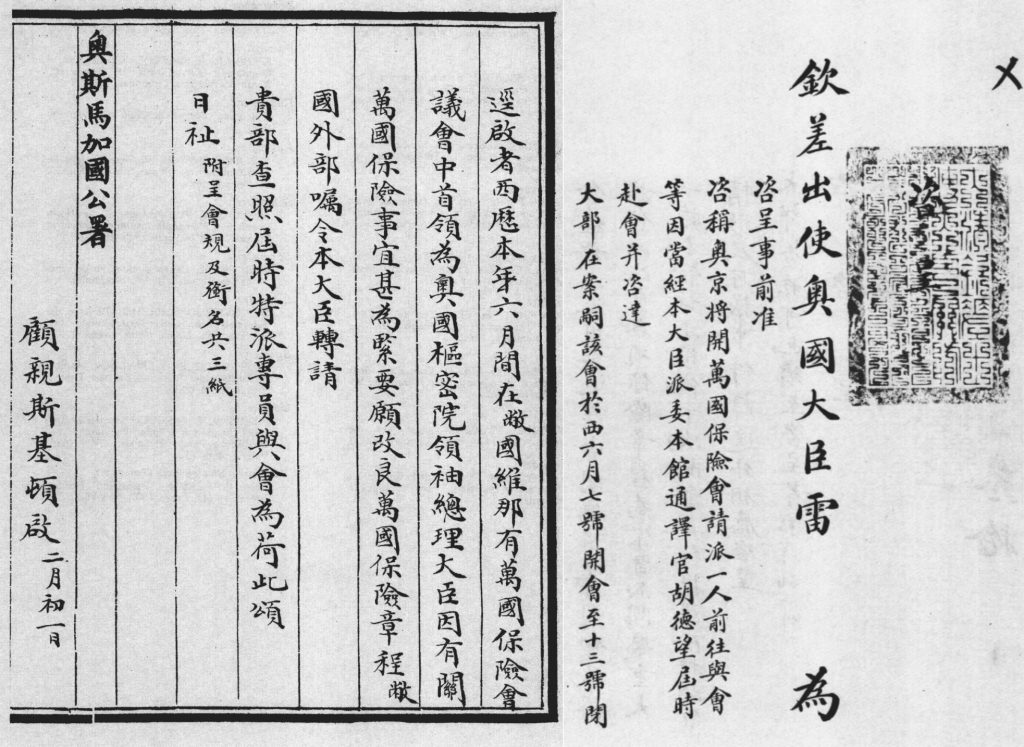 咨呈
欽差出使奧國大臣雷 為
咨呈事前准
咨稱奧京將開萬國保險會請派一人前往與會
等因當經本大臣派委本館通譯官胡德望屆時
赴會并咨達
大部在案嗣該會於西六月七號開會至十三號閉
逕啟者西歷本年六月間在敝國維那有萬國保險會
議會中首領為奧國樞密院領袖總理大臣因有關
萬國保險事宜甚為緊要願改良萬國保險章程敝
國外部囑令本大臣轉請
貴部查照屆時特派專員與會為荷此頌
日祉 附呈會規及銜名共三紙
奧斯馬加國公署
顧親斯基頓啟 二月初一日